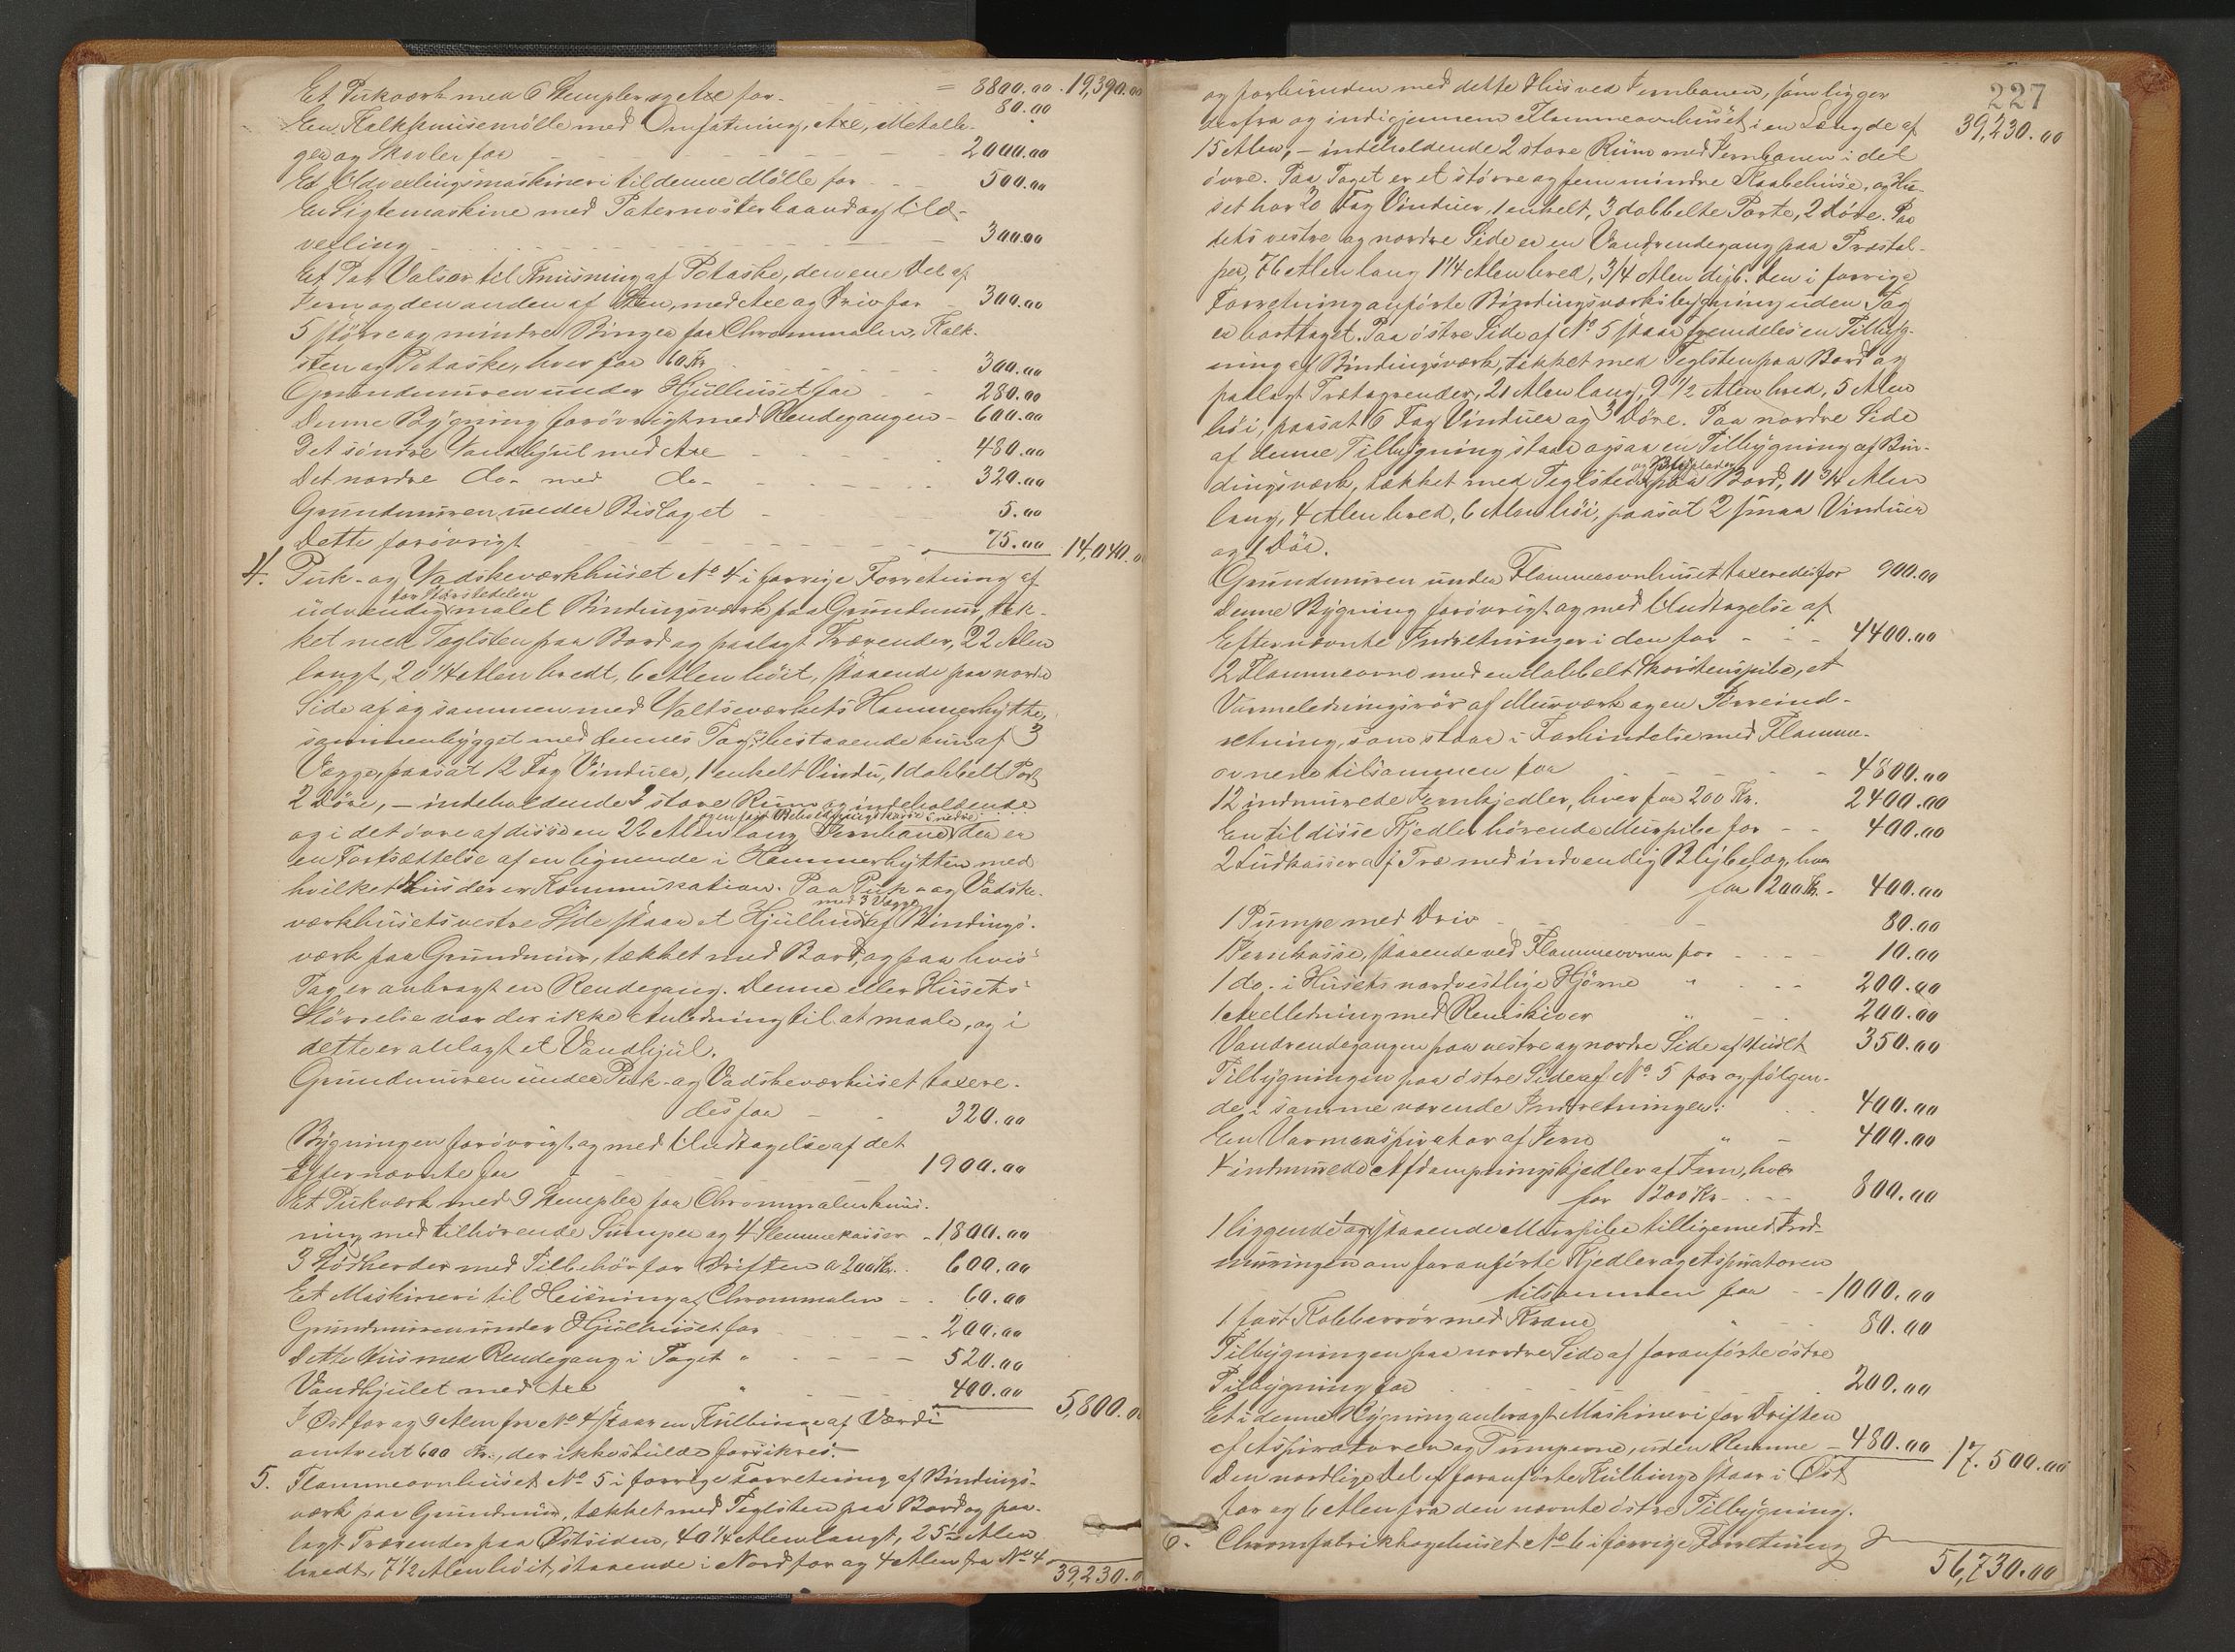 Et Pukværk med 6 Stempler og Axe for - = 8800.00 . 19,390.00
80.00
En Kalkknusemølle med Omfatning, Axe, Metalle-
ger og Skovler for - 2000.00
Et Udvexlingsmaskineri til denne Mølle for - 500.00
En Sigtemaskine med Paternosterbaand og Ud-
vexling - 300.00
Et Par Valser til Knusning af Potaske, den ene Del af
Jern og den anden af Sten, med Axe og Driv for - 300.00
5 større og mindre Binger for Chrommalm, Kalk-
sten og Potaske, hver for 60 Kr. - 300.00
Grundmuren under Hjulhuset for - 280.00
Denne Bygning forøvrigt med Rendegangen - 600.00
Det søndre Vandhjul med Axe - 480.00
Det nordre do. med do. - 320.00
Grundmuren under Bislaget - 5.00
Dette forøvrigt - 75.00 14,040.0
4. Puk- og Vadskeværkhuset No. 4 i forrige Forretning af
for Størstedelen
udvendig malet Bindingsværk paa Grundmur, tæk-
ket med Teglsten paa Bord og paalagt Trærender, 22 Alen
langt, 20 1/4 Alen bredt, 6 Alen høit, staaende paa nordre
Side af og sammen med Valtseværkets Hammerhytte,
sammenbygget med dennes Tag, bestaaende kun af 3
Vægge, paasat 12 Fag Vinduer, 1 enkelt Vindu, 1 dobbelt Port,
2 Døre, - indeholdende 2 store Rum og indeholdende
og i det øvre af disse en 22 Alen lang Jernbane, der er
en Fortsættelse af en lignende i Hammerhytten med
hvilket Huus der er Kommunikation. Paa Puk- og Vadske-
med 3 Vægge
værkhusets vestre Side staar et Hjulhus af Bindings-
værk paa Grundmur, tækket med Bord, og paa hvis
Tag er anbragt en Rendegang. Denne eller Husets
Størrelse var der ikke Anledning til at maale, og i
dette er anlagt et Vandhjul.
Grundmuren under Puk- og Vadskeværkhuset taxere-
des for - 320.00
Bygningen forøvrigt og med Undtagelse af det
Efternævnte for - 1900.00
Et Pukværk med 9 Stempler for Chrommalmknus-
ning med tilhørende Sumper og 4 Slemmekasser - 1800.00
3 Stødherder med Tilbehør for Driften a 200 Kr. 600.00
Et Maskineri til Heisning af Chrommalm - 60.00
Grundmuren under Hjulhuset for - 200.00
Dette Huus med Rendegang i Taget " - 520.00
Vandhjulet med Axe " - 400.00 5,800.00
I Øst for og 9 Alen fra No. 4 staar en Kulbinge af Værdi
omtrent 600 Kr., der ikke skulde forsikres. -
5. Flammeovnhuset No. 5 i forrige Forretning af Bindings-
værk paa Grundmur, tækket med Teglsten paa Bord og paa-
lagt Trærender paa Østsiden, 40 1/4 Alen langt, 25 1/2 Alen
bredt, 7 1/2 Alen høit, staaende i Nord for og 4 Alen fra No. 4
39,230.0
227
og forbunden med dette Hus ved Jernbanen, som ligger
39,230.00
derfra og ind igjennem Flammeovnhuset i en Længde af
15 Alen, - indeholdende 2 store Rum med Jernbanen i det
øvre. Paa Taget er et større og fem mindre Raabehuse, og Hu-
set har 20 Fag Vinduer, 1 enkelt, 3 dobbelte Porte, 2 Døre. Paa
dets vestre og nordre Side er en Vandrendegang paa Træstol-
per, 76 Alen lang 1 1/4 Alen bred, 3/4 Alen dyb. Den i forrige
Forretning anførte Bindingsværksbygning uden Tag
er borttaget. Paa østre Side af No. 5 staar fremdeles en Tilbyg-
ning af Bindingsværk, tækket med Teglsten paa Bord og
paalagt Trætagrender, 21 Alen lang, 9 1/2 Alen bred, 5 Alen
høi, paasat 6 Fag Vinduer og 3 Døre. Paa nordre Side
af denne Tilbygning staar ogsaa en Tilbygning af Bin-
dingsværk, tækket med Teglsten paa Bord, 11 3/4 Alen
lang, 4 Alen bred, 6 Alen høi, paasat 2 smaa Vinduer
og 1 Dør.
Grundmuren under Flammeovnhuset taxeredes for 900.00
Denne Bygning forøvrigt og med Undtagelse af
Efternævnte Indretninger i den for - 4400.00
2 Flammeovne med en dobbelt Skorstenspibe, et
Varmeledningsrør af Murværk og en Tørreind-
retning, som staar i Forbindelse med Flamme-
ovnene tilsammen for - 4800.00
12 indmurede Jernkjedler, hver for 200 Kr. 2400.00
En til disse Kjedler hørende Murpibe for - 400.00
2 Ludkasser af Træ med indvendig Blybelæg, hver
for 200 Kr. - 400.00
1 Pumpe med Driv - 80.00
1 Jernkasse, staaende ved Flammeovnen for - 10.00
1 do. i Husets nordvestlige Hjørne " - 200.00
1 Axelledning med Remskiver " - 200.00
Vandrendegangen paa vestre og nordre Side af Huset 350.00
Tilbygningen paa østre Side af No. 5 for og følgen-
de i samme værende Indretninger: 400.00
En Varmeaspirator af Jern " - 400.00
4 indmurede Afdampningskjedler af Jern, hver
for 200 Kr. - 800.00
1 liggende og 1 staaende Murpibe tilligemed Ind-
muringen om foranførte Kjedler og Aspiratoren
tilsammen for - 1000.00
1 fast Kobberrør med Krane " - 80.00
Tilbygningen paa nordre Side af foranførte østre
Tilbygning for - 200.00
Et i denne Bygning anbragt Maskineri for Driften
af Aspiratoren og Pumperne, uden Remme - 480.00 17.500.00
Den nordlige Del af foranførte Kulbinge staar i Øst
for og 6 Alen fra den nævnte østre Tilbygning.
6. Chromfabrikkogehuset No. 6 i forrige Forretning
56,730.00